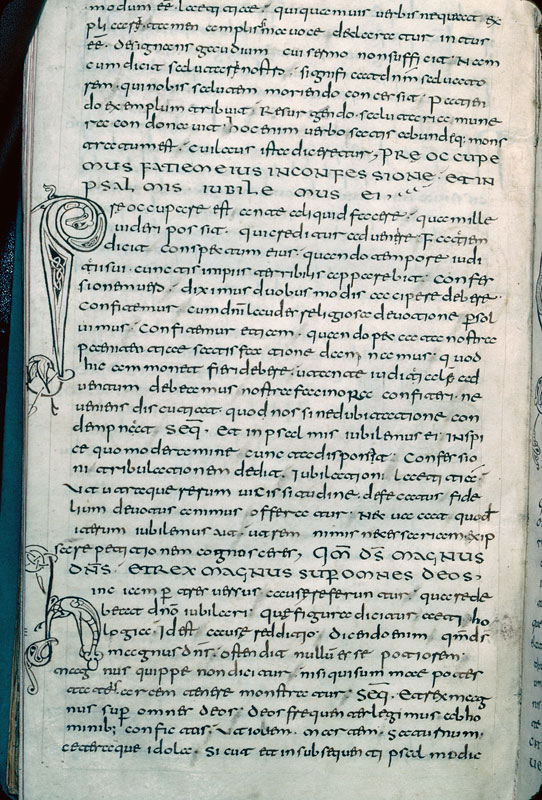 modum ēē laetitiae · quiquemuis uerbis nequeat ex
plicare · tamen amplissima uoce declaratur intus
ēē · designans gaudium cui sermo non sufficit · Nam
cum dicit salutari nostro · significat dnm saluato
rem · qui nobis salutem moriendo concessit · Patien
do exemplum tribuit · Resurgendo salutaria mune
ra condonauit · hoc enim uerbo satis abundeq: mons
tratum est · cui laus ista diceretur, PRE OCCUPE
MUS FATIEM EIUS IN CONFESSIONE · ET IN
PSALMIS IUBILEMUS EI ;
Preoccupare est ante aliquid facere · quam ille
uideri possit · qui creditur aduenire · Faciem
dicit conspectum eius · quando tempore iudi
tii sui cunctis impiis terribilis apparebit · Confes
sionem uero · diximus duobus modis accipere debere ·
Confitemur · cum dni laudes religiosa deuotione psol
uimus · Confitemur etiam · quando peccata nostra
paenitentiae satisfactione damnamus · quod
hic commonet fieri debere · ut ante iuditii celsi ad
uentum debeamus nostra facinora confiteri · ne
ueniens discutiat · quod nos sine dubitatione con
dempneat Seq̄ · Et in psalmis iubilemus ei · Inspi
ce quo moderamine cuncta disposuit · Confessio
ni tribulationem dedit · Iubilationi laetitiae ·
Ut utraque rerum uicissitudine · defaecatus fide
lium deuotus animus offeratur · Nec uacat quod
iterum iubilemus ait · ut rem nimis necessariam exip
sa repetitione cognosceres, QM DS MAGNUS
DNS · ET REX MAGNUS SUP OMNES DEOS,
Hinc iam p tres uersus causae referuntur · qua re de
beat dno iubilari · quae figura dicitur aeti ho
logia · Id est causae redditio · Dicendo enim qm ds
magnus dns · ostendit nullum esse potiorem ·
magnus quippe non dicitur · nisi qui summam potes
tatis arcem tenere monstratur · Seq̄ · Et rex mag
nus sup omnes deos · Deos frequenter legimus ab ho
minib; confictas · Ut iouem · martem · saturnum ·
ceteraque idola · Sicut et in subsequenti psalmo dic